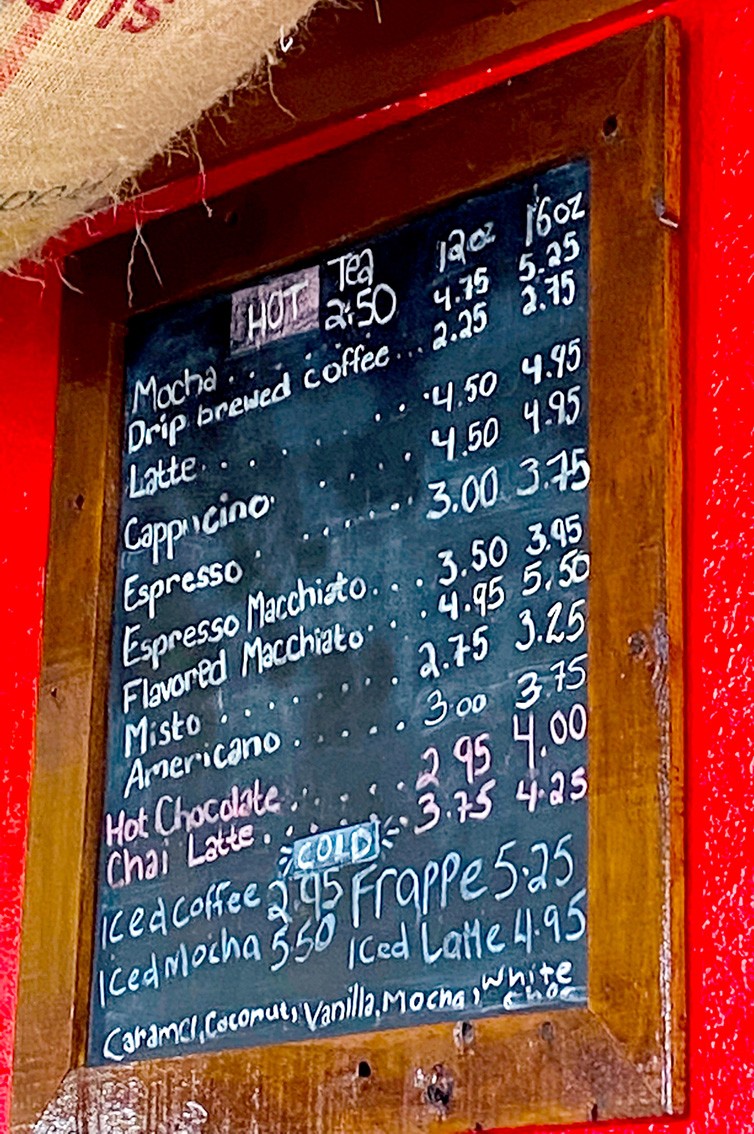 HOT Tea 12oz 16oz
2.50
Mocha . . . . . 4.75 5.25
Drip brewed coffee... 2.25 2.75
Latte . . . . . . . 4.50 4.95
Cappucino . . . . 4.50 4.95
Espresso . . . . . . 3.00 3.75
Espresso Macchiato. . . 3.50 3.95
Flavored Macchiato . . . 4.95 5.50
Misto . . . . . . . . 2.75 3.25
Americano . . . . . 3.00 3.75
Hot Chocolate . . . . . 2.95 4.00
Chai Latte . . . . . . 3.75 4.25
COLD
Iced Coffee 2.95 Frappe 5.25
Iced Mocha 5.50 Iced Latte 4.95
Caramel, Coconut, Vanilla, Mocha, White Choc